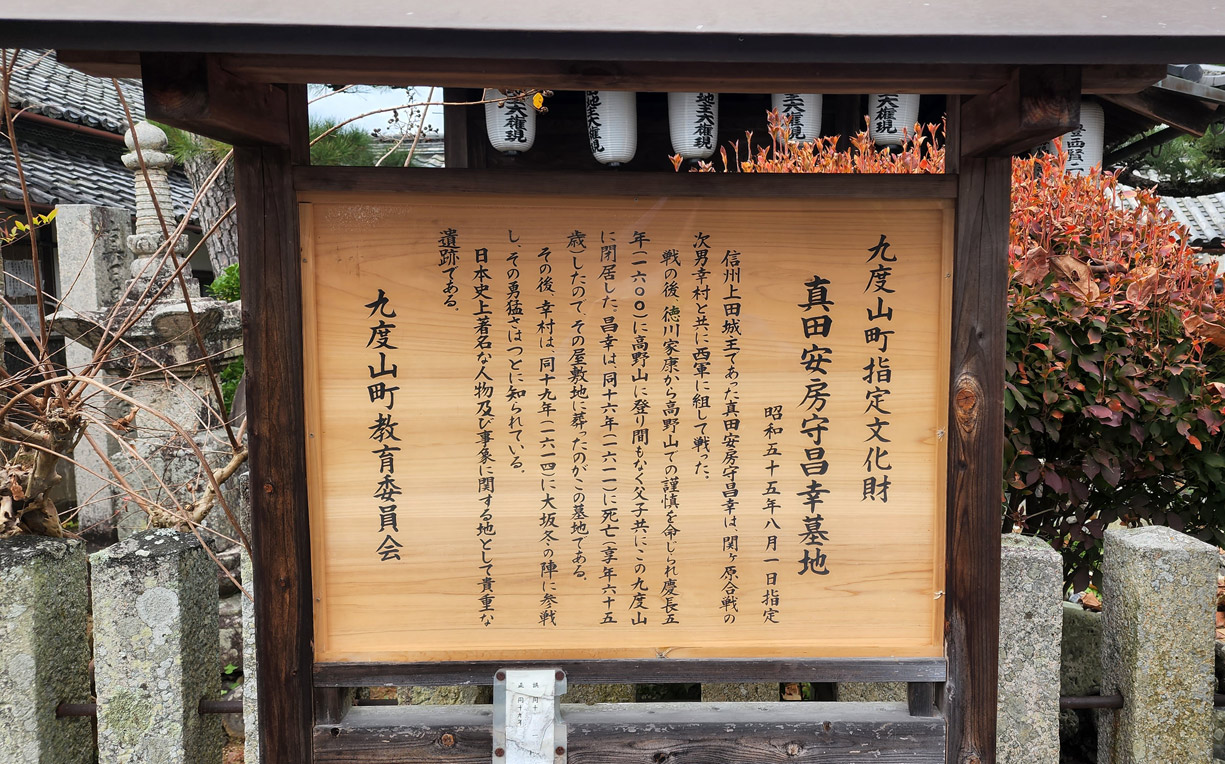 九度山町指定文化財
真田安房守昌幸墓地
昭和五十五年八月一日指定
信州上田城主であった真田安房守昌幸は、関ヶ原合戦の
次男幸村と共に西軍に組して戦った。
戦の後、徳川家康から高野山での謹慎を命じられ慶長五
年(一六〇〇)に高野山に登り間もなく父子共にこの九度山
に閉居した。昌幸は、同十六年(一六一一)に死亡(享年六十五
歳)したので、その屋敷地に葬ったのがこの墓地である。
その後、幸村は、同十九年(一六一四)に大坂冬の陣に参戦
し、その勇猛さはつとに知られている。
日本史上著名な人物及び事象に関する地として貴重な
遺跡である。
九度山町教育委員会
主大権現
地主大権現
地主大権現
主大権現
主大権現